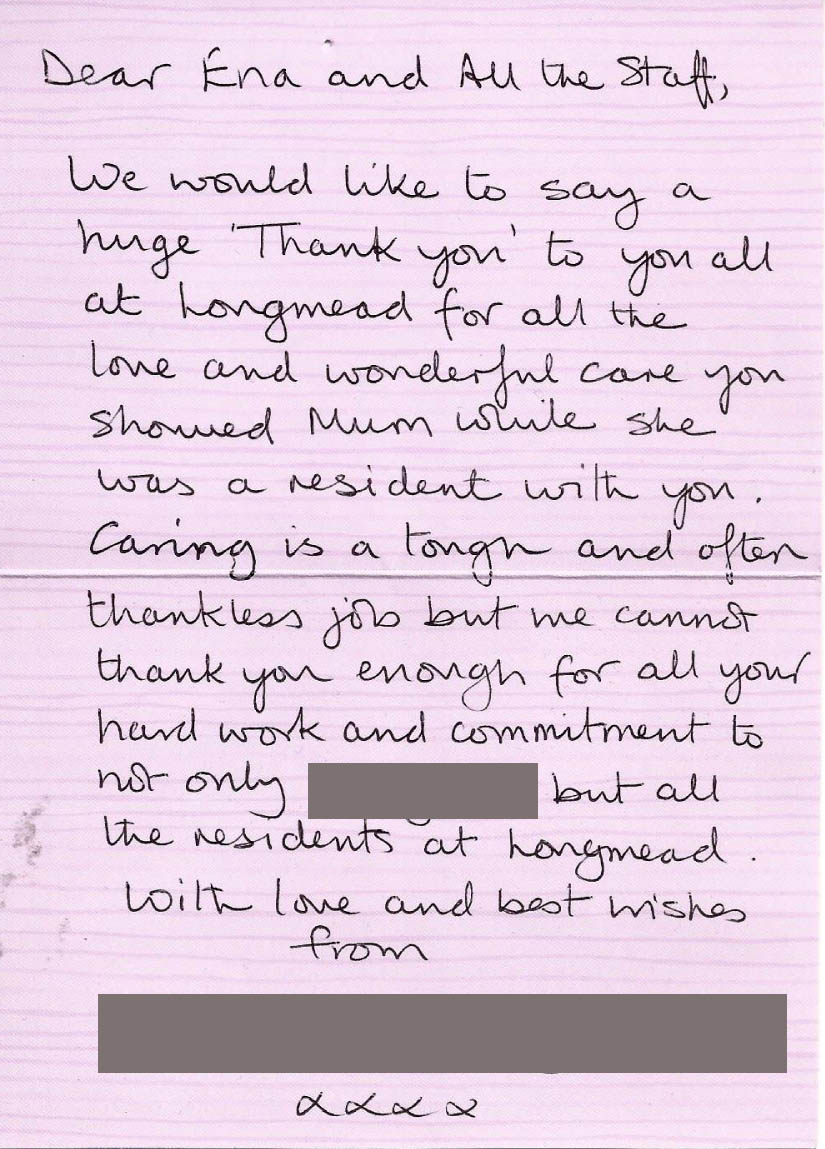 Dear Ena and All the Staff,
We would like to say a
huge 'Thank you' to you all
at Longmead for all the
love and wonderful care you
showed Mum while she
was a resident with you.
Caring is a tough and often
thankless job but we cannot
thank you enough for all your
hard work and commitment to
not only but all
the residents at Longmead.
With love and best wishes
from
xxxx